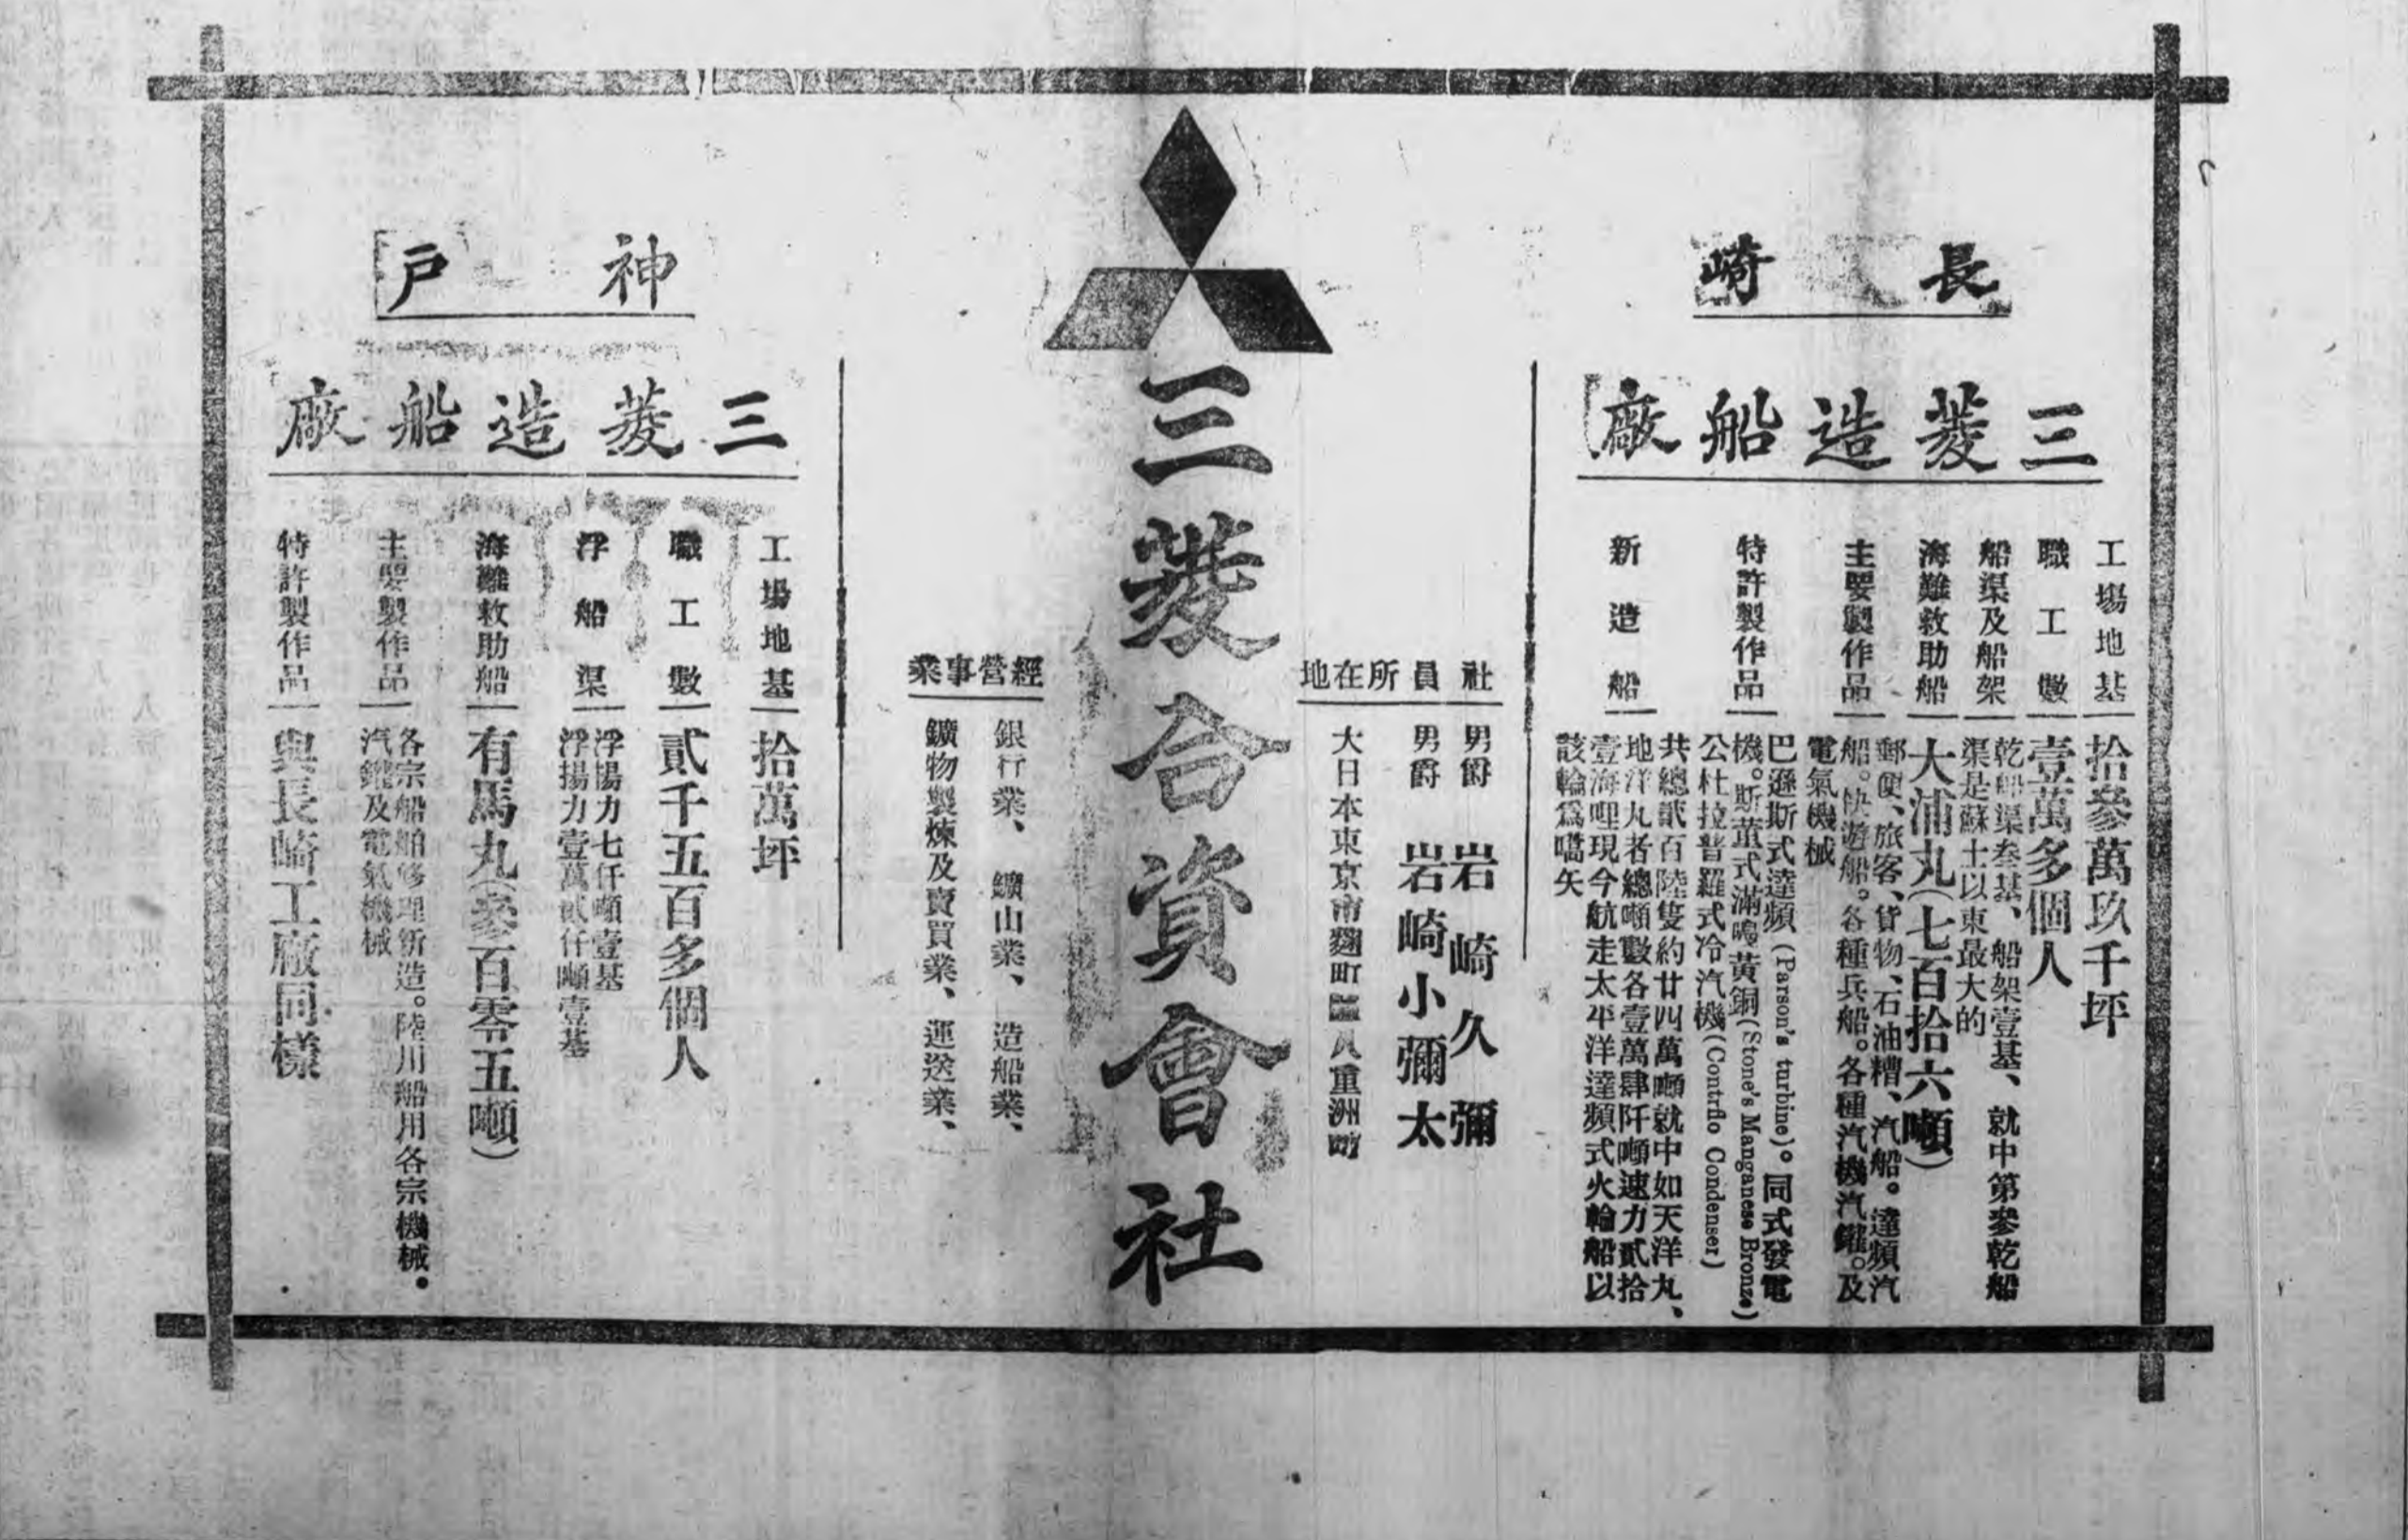 長崎
三菱造船廠
工場地基
拾參萬玖千坪
職工數
壹萬多個人
船渠及船架
乾船渠叁基、船架壹基、就中第參乾船
渠是蘇士以東最大的
海難救助船
大浦丸(七百拾六噸)
主要製作品
郵便、旅客、貨物、石油糟、汽船。達頻汽
船。快遊船。各種兵船。各種汽機汽鑵。及
電氣機械
特許製作品
巴遜斯式達頻(Parson's turbine)。同式發電
機。斯董式滿唵黃銅(Stone's Manganese Bronze)
公杜拉普羅式冷汽機(Contraflo Condenser)
新造船
共總貳百陸隻約廿四萬噸就中如天洋丸、
地洋丸者總噸數各壹萬肆阡噸速力貳拾
壹海哩現今航走太平洋達頻式火輪船以
該輪爲嚆矢
三菱合資會社
社員所在地
男爵 岩崎久彌
男爵 岩崎小彌太
大日本東京市麴町區八重洲町
經營事業
銀行業、鑛山業、造船業、
鑛物製煉及賣買業、運送業、
神戶
三菱造船廠
工場地基
拾萬坪
職工數
貳千五百多個人
浮船渠
浮揚力七仟噸壹基
浮揚力壹萬貳仟噸壹基
海難救助船
有馬丸(參百零五噸)
主要製作品
各宗船舶修理新造。陸川船用各宗機械。
汽鑵及電氣機械
特許製作品
與長崎工廠同樣